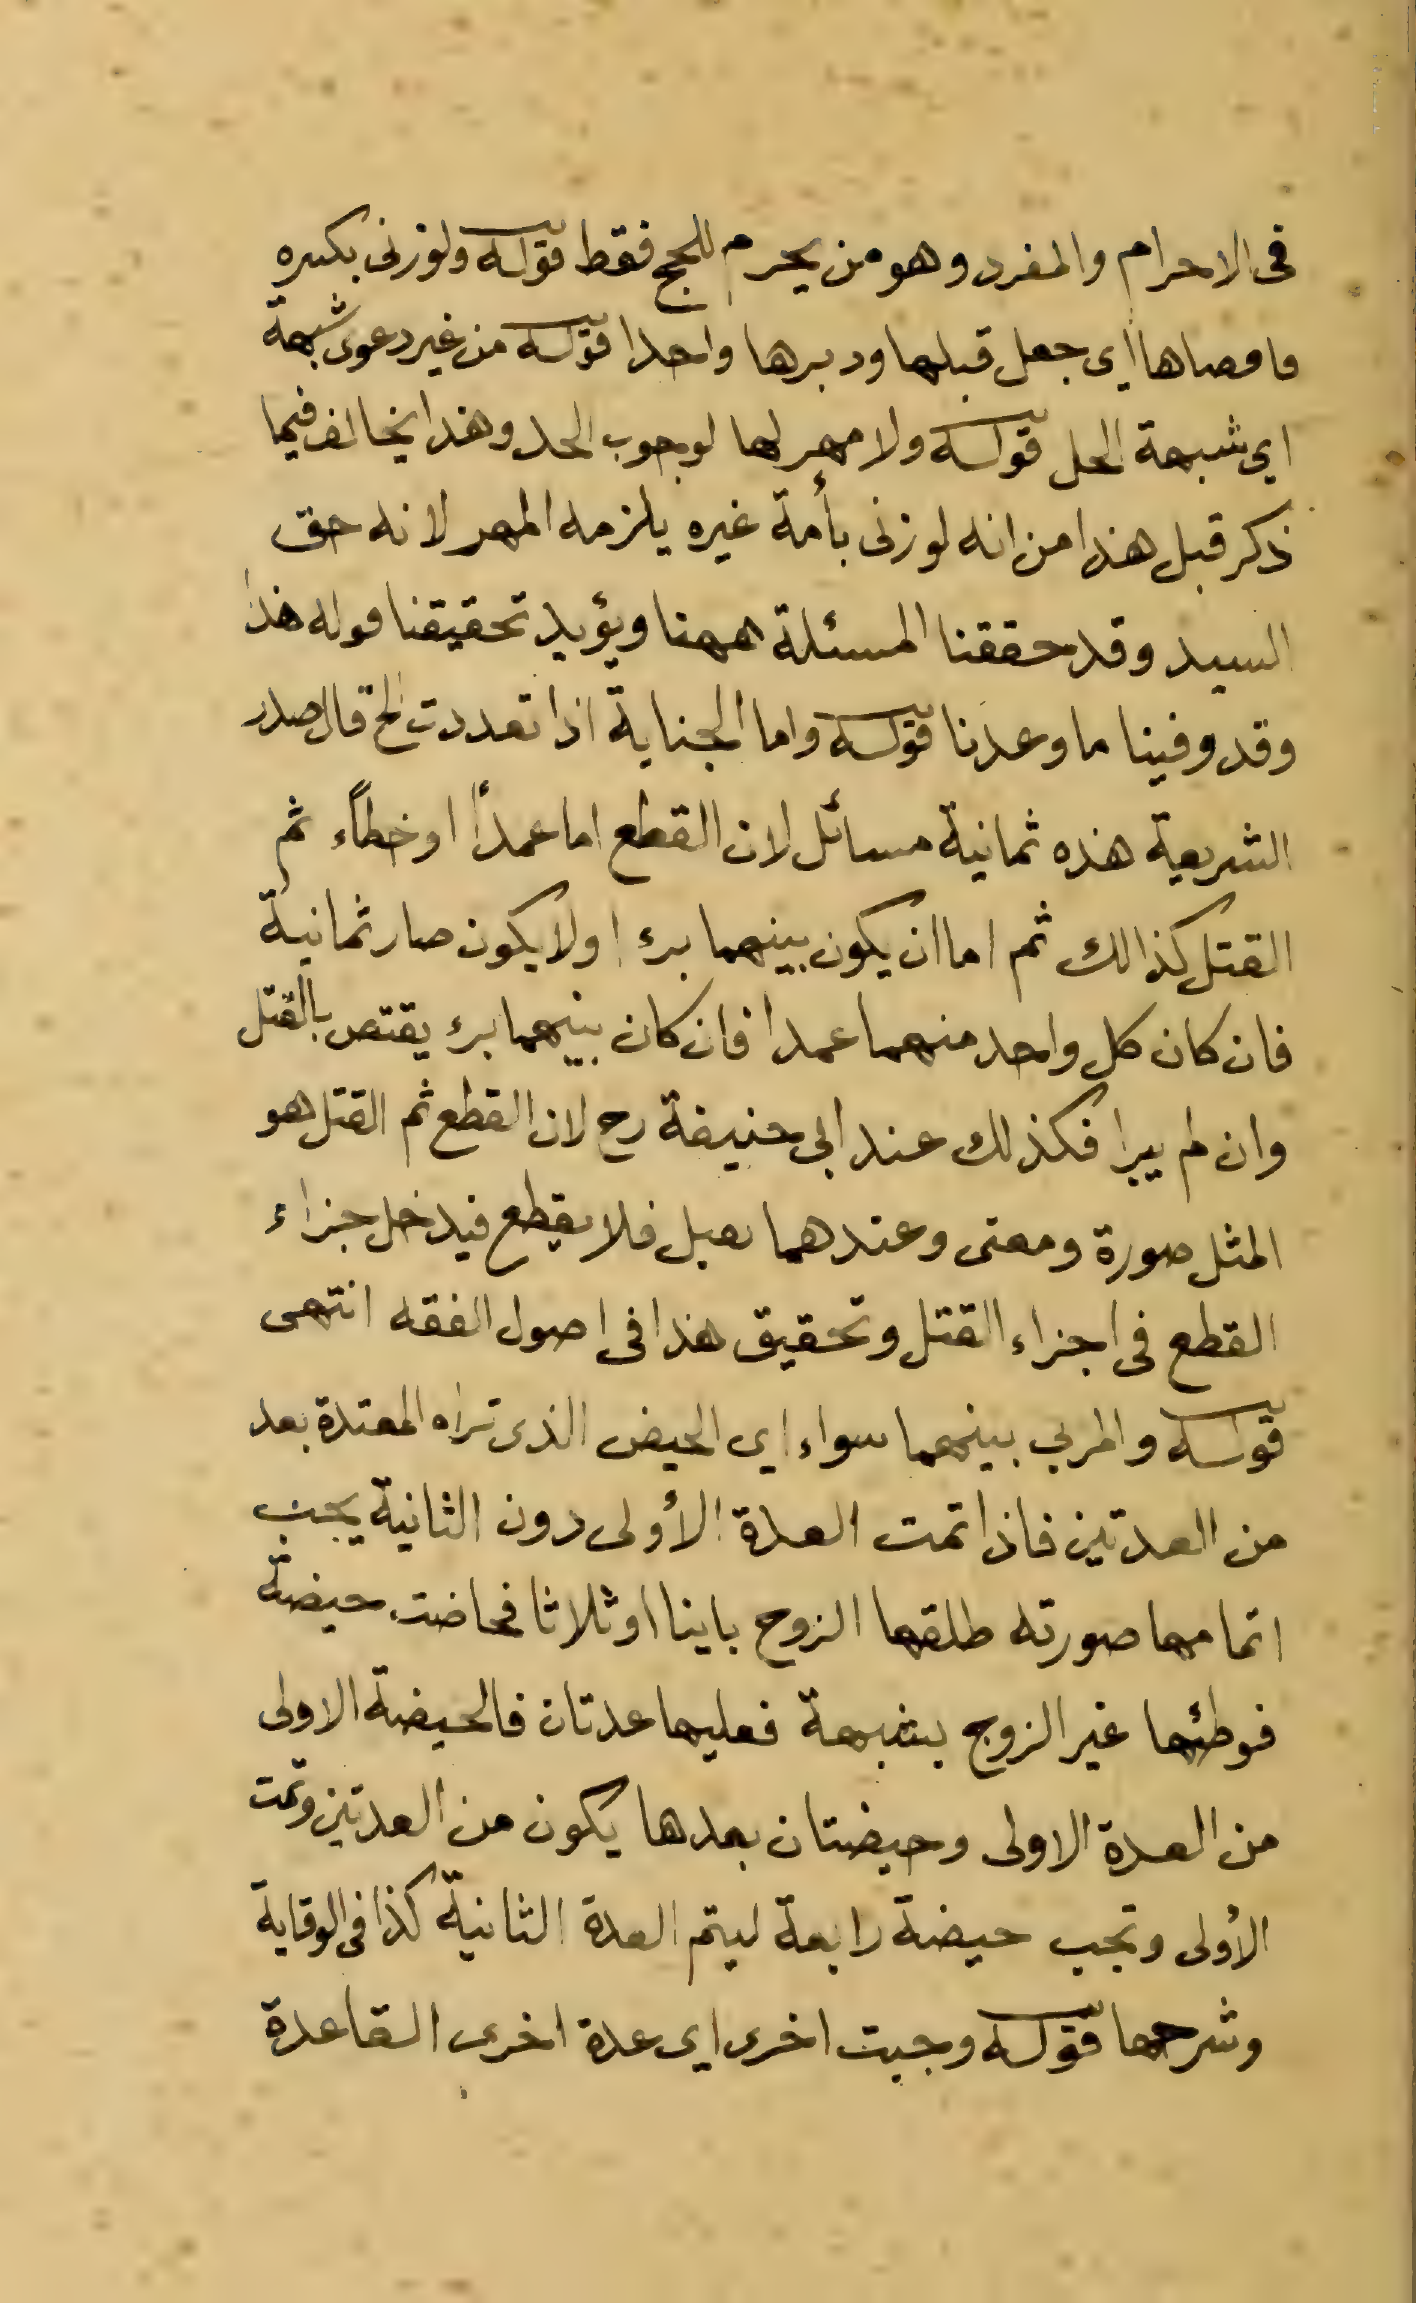 فى الاحرام والمفرد وهو من يحرم للحج فقط قوله ولوزنى بكبيره
فافضاها اى جعل قبلها ودبرها واحدا قوله من غير دعوى شبهة
اي شبهة الحل قوله ولا مهر لها لوجوب الحد وهذا يخالف فيما
ذكر قبل هذا من انه لوزنى بأمة غيره يلزمه المهر لانه حق
السيد وقد حققنا المسئلة ههنا ويؤيد تحقيقنا قوله هذا
وقد وفينا ما وعدنا قوله واما الجناية اذا تعددت الخ قال صدر
الشريعة هذه ثمانية مسائل لان القطع اما عمداً او خطاًء ثم
القتل كذالك ثم اما ان يكون بينهما برء اولا يكون صار ثمانية
فان كان كل واحد منهما عمدا فان كان بينهما برء يقتص بالقتل
وان لم يبرا فكذلك عند ابى حنيفة رح لان القطع ثم القتل هو
المثل صورة ومعنى وعندهما يقتل فلا يقطع فيدخل جزاء
القطع فى اجزاء القتل وتحقيق هذا فى اصول الفقه انتهى
قوله والمربي بينهما سواء اى الحيض الذى تراه المعتدة بعد
من العدتين فاذا تمت العدة الأولى دون الثانية يجب
اتمامها صورته طلقها الزوج باينا او ثلاثا فحاضت حيضة
فوطئها غير الزوج بشبهة فعليها عدتان فالحيضة الاولى
من العدة الاولى وحيضتان بعدها يكون من العدتين وتمت
الأولى وتجب حيضة رابعة ليتم العدة الثانية كذا فى الوقاية
وشرحها قوله وجبت اخرى اى عدة اخرى القاعدة